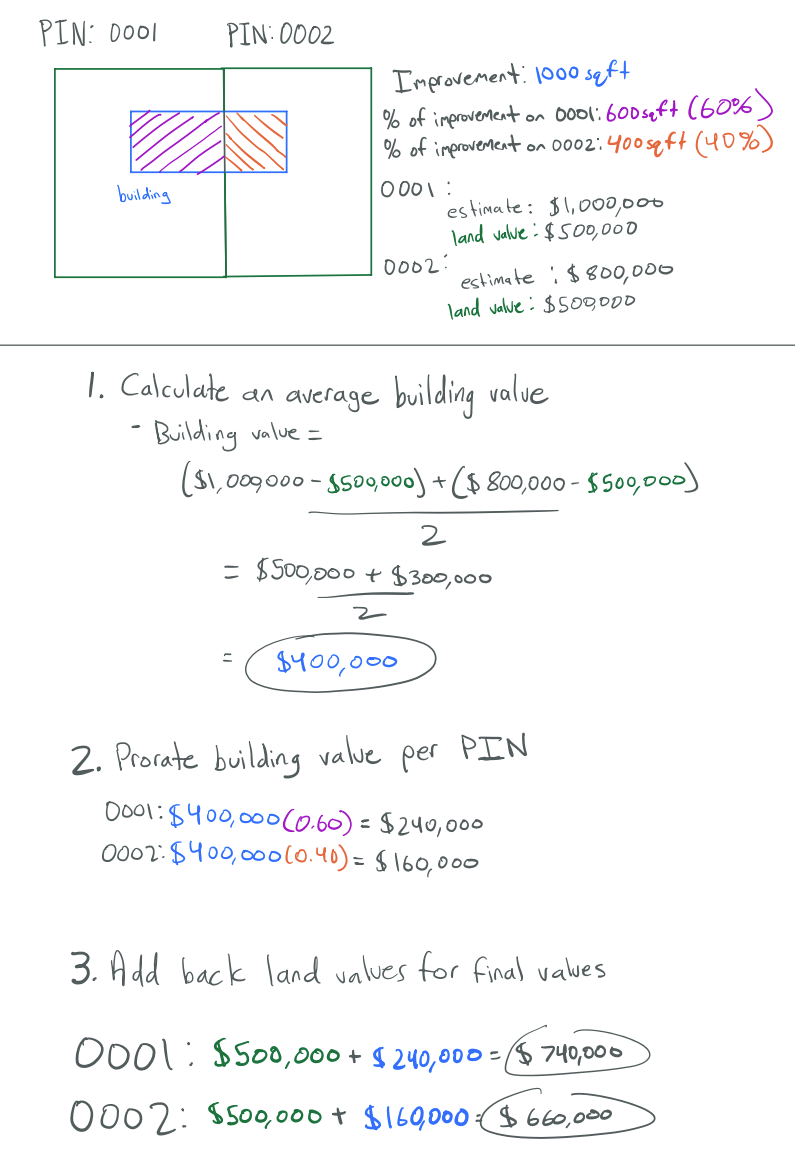 PIN: 0001 PIN: 0002
Improvement: 1000 sqft
% of improvement on 0001: 600sqft (60%)
% of improvement on 0002: 400sqft (40%)
building
0001:
estimate: $1,000,000
land value: $500,000
0002:
estimate: $800,000
land value: $500,000
1. Calculate an average building value
- Building value =
($1,000,000 - $500,000) + ($800,000 - $500,000)
2
= $500,000 + $300,000
2
= $400,000
2. Prorate building value per PIN
0001: $400,000 (0.60) = $240,000
0002: $400,000 (0.40) = $160,000
3. Add back land values for final values
0001: $500,000 + $240,000 = $740,000
0002: $500,000 + $160,000 = $660,000